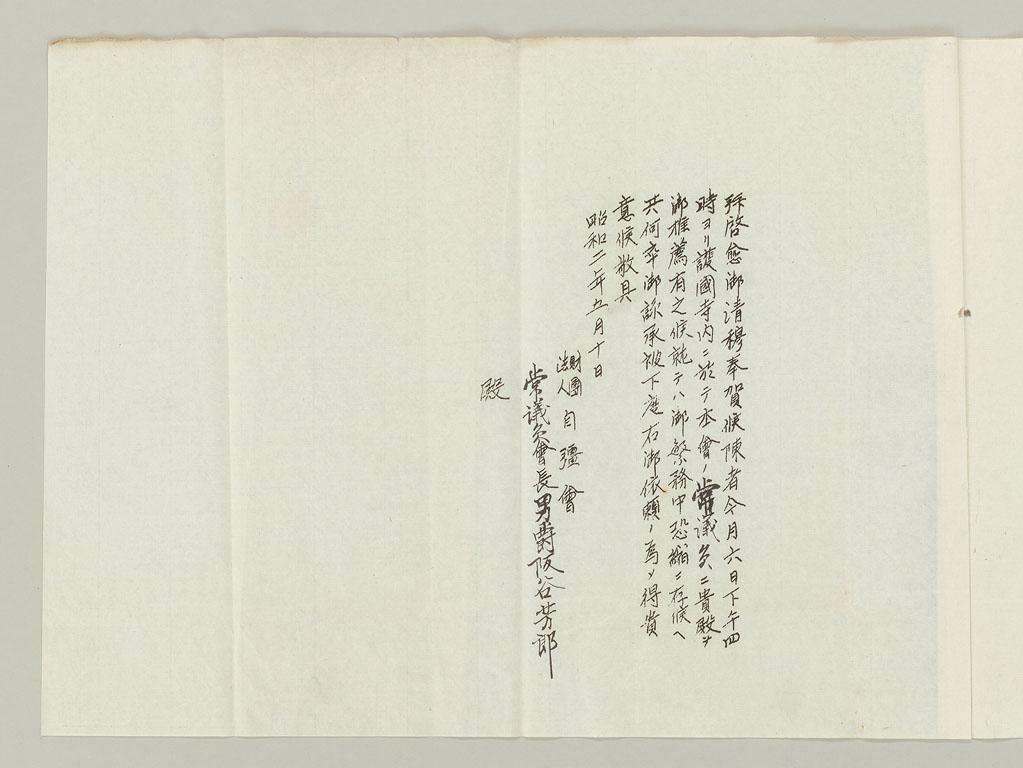 拝啓愈御清穆奉賀候陳者今月六日下午四
時ヨリ護國寺内ニ於テ本會ノ常議員ニ貴殿ヲ
御推薦有之候就テハ御繁務中恐縮ニ存候ヘ
共何卒御承被下度右御依頼ノ為メ得貴
意候敬具
昭和二年五月十日
財團法人 自彊會
常議員會長男爵阪谷芳郎
殿